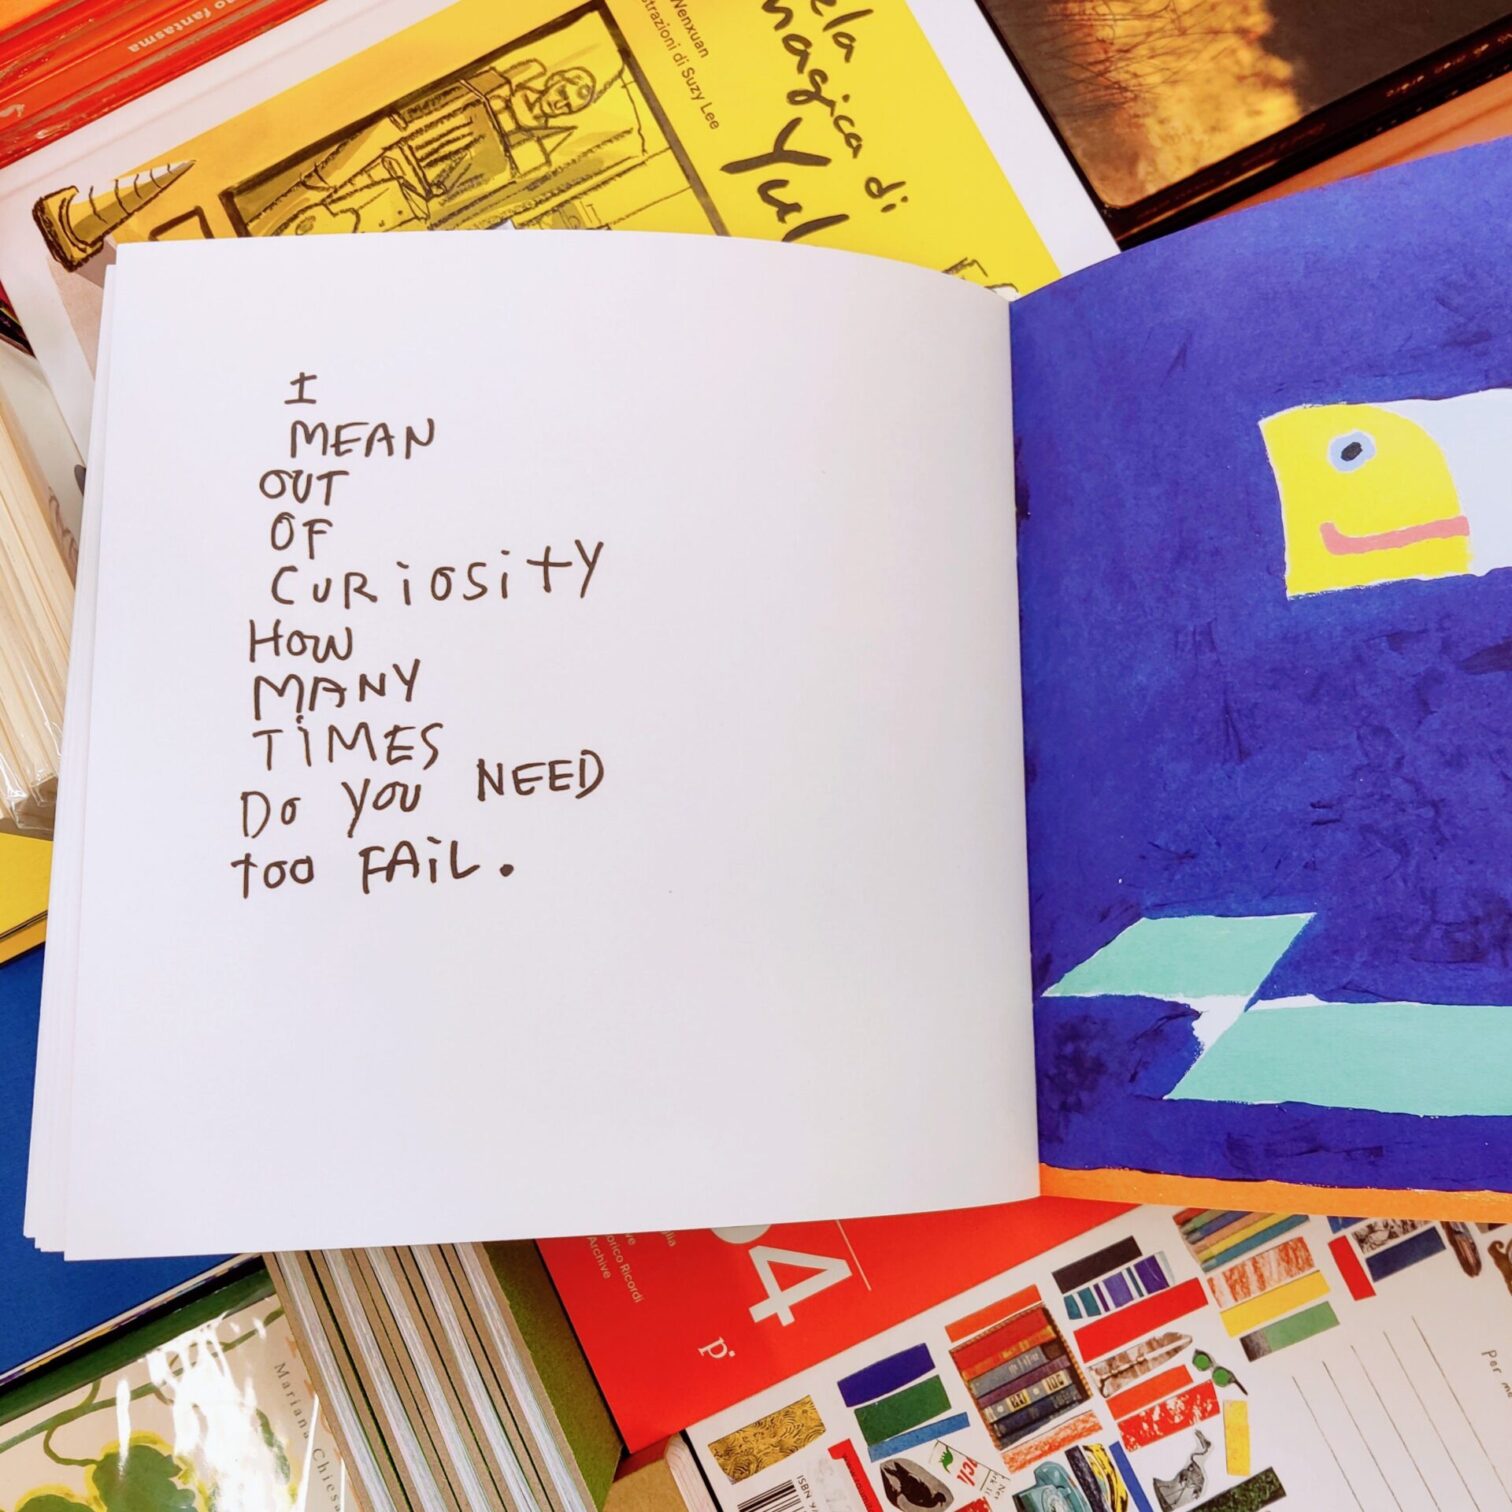 no fantasma
Wenxuan
strazioni di Suzy Lee
ela
magica di
Yul
I
MEAN
OUT
OF
CURiOSiTY
HOW
MANY
TiMES
DO YOU NEED
TOO FAiL.
orico Ricordi
Archive
p.
Mariana Chiesa
ISBN
Per